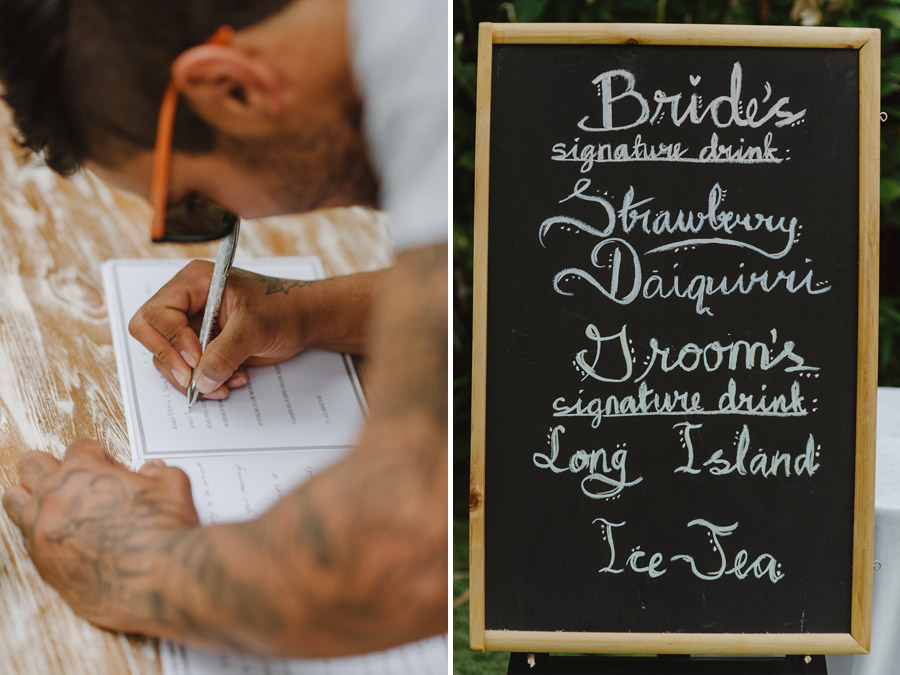 Bride's
signature drink:
Strawberry
Daiquirri
Groom's
signature drink:
Long Island
Ice-Tea